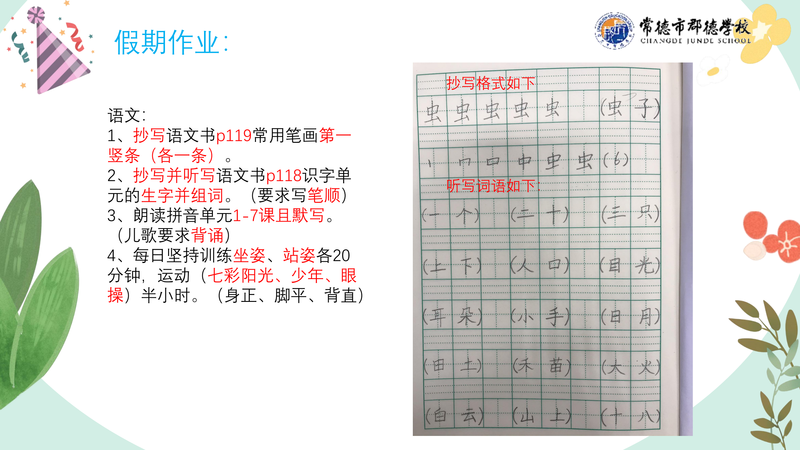 假期作业：
常德市郡德学校
CHANGDE JUNDE SCHOOL
语文：
1、抄写语文书p119常用笔画第一
竖条（各一条）。
2、抄写并听写语文书p118识字单
元的生字并组词。（要求写笔顺）
3、朗读拼音单元1-7课且默写。
（儿歌要求背诵）
4、每日坚持训练坐姿、站姿各20
分钟，运动（七彩阳光、少年、眼
操）半小时。（身正、脚平、背直）
抄写格式如下
虫 虫 虫 虫 虫 (虫 子)
丨 口 中 虫 虫 (6)
听写词语如下
(一 个) (二 十) (三 只)
(上 下) (人 口) (目 光)
(耳 朵) (小 手) (日 月)
(田 土) (禾 苗) (大 火)
(白 云) (山 上) (十 八)